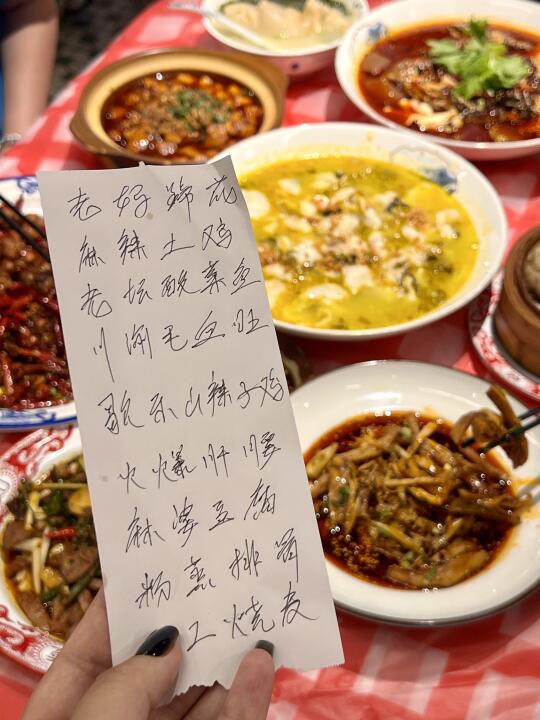 老好蹄花
麻辣土鸡
老坛酸菜鱼
川湘毛血旺
歌乐山辣子鸡
火爆肝腰
麻婆豆腐
粉蒸排骨
工烧皮